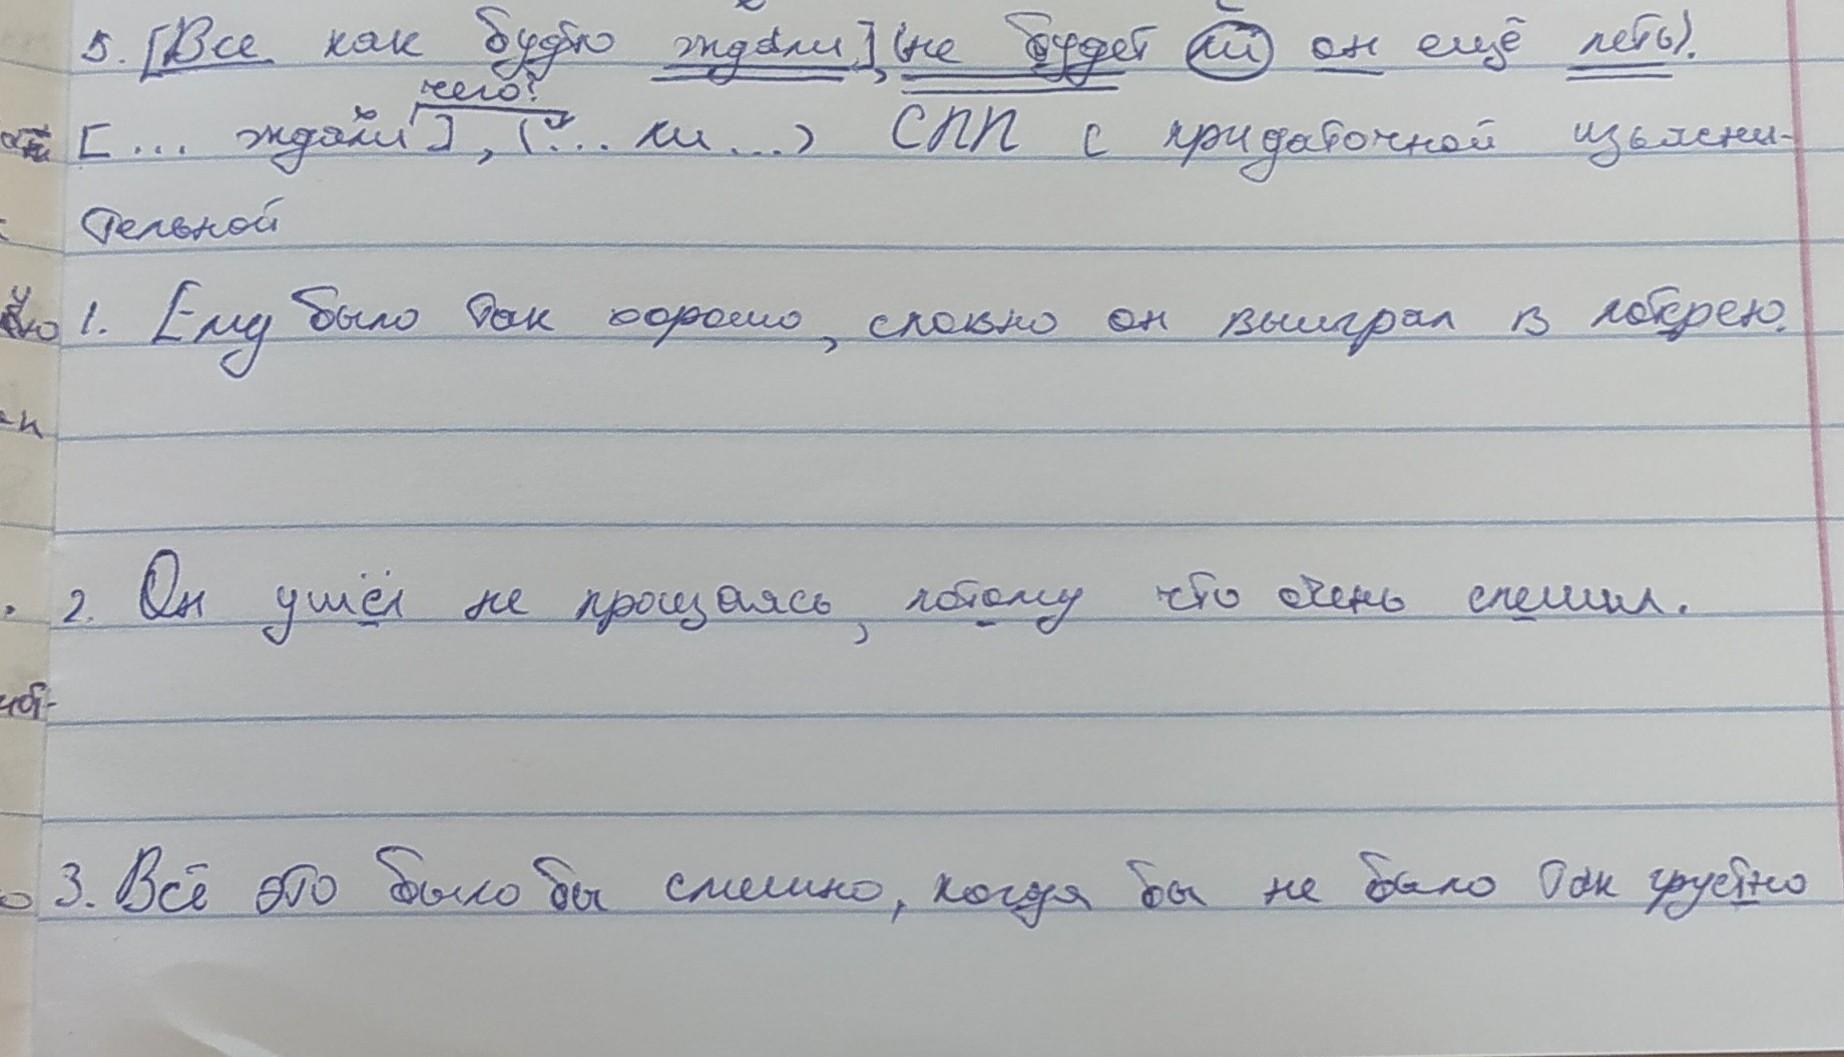 5. [Все как будто ждали], (не будет ли он ещё петь).
чего?
[... ждали], (... ли ...) СПП с придаточной изъясни-
тельной
1. Ему было так хорошо, словно он выиграл в лотерею.
2. Он ушёл не прощаясь, потому что очень спешил.
3. Всё это было бы смешно, когда бы не было так грустно